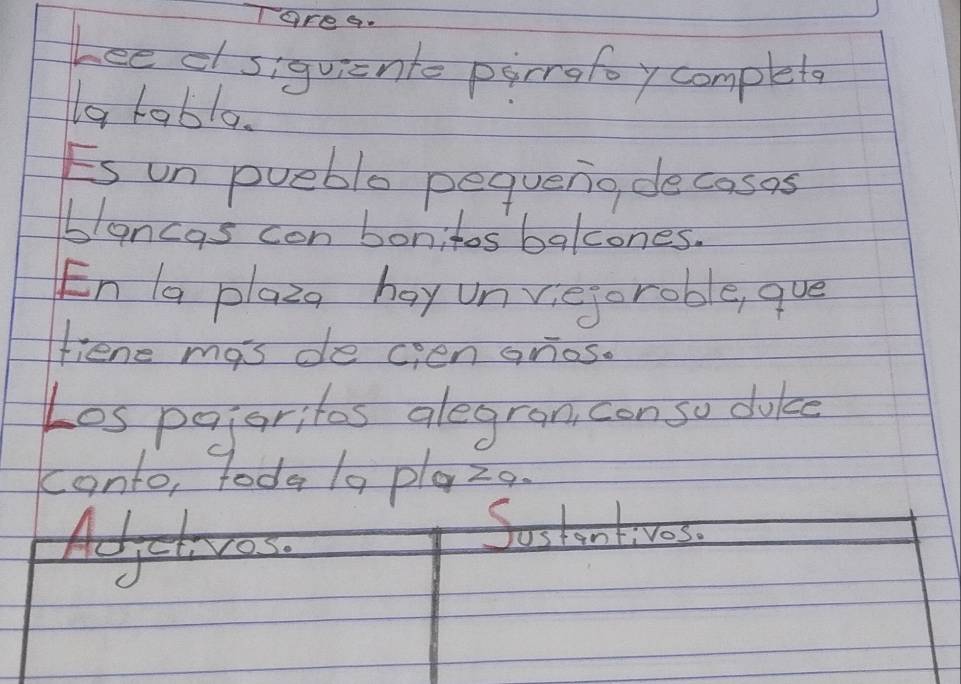 Tarea.
Lee el siguiente párrafo y completa
la tabla.
Es un pueblo pequeño, de casas
blancas con bonitos balcones.
En la plaza hay un viejo roble, que
tiene más de cien años.
Los pajaritos alegran, con su dulce
canto, toda la plaza.
Adjetivos. Sustantivos.